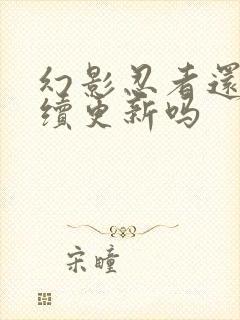 幻影忍者還
續更新吗
宋瞳